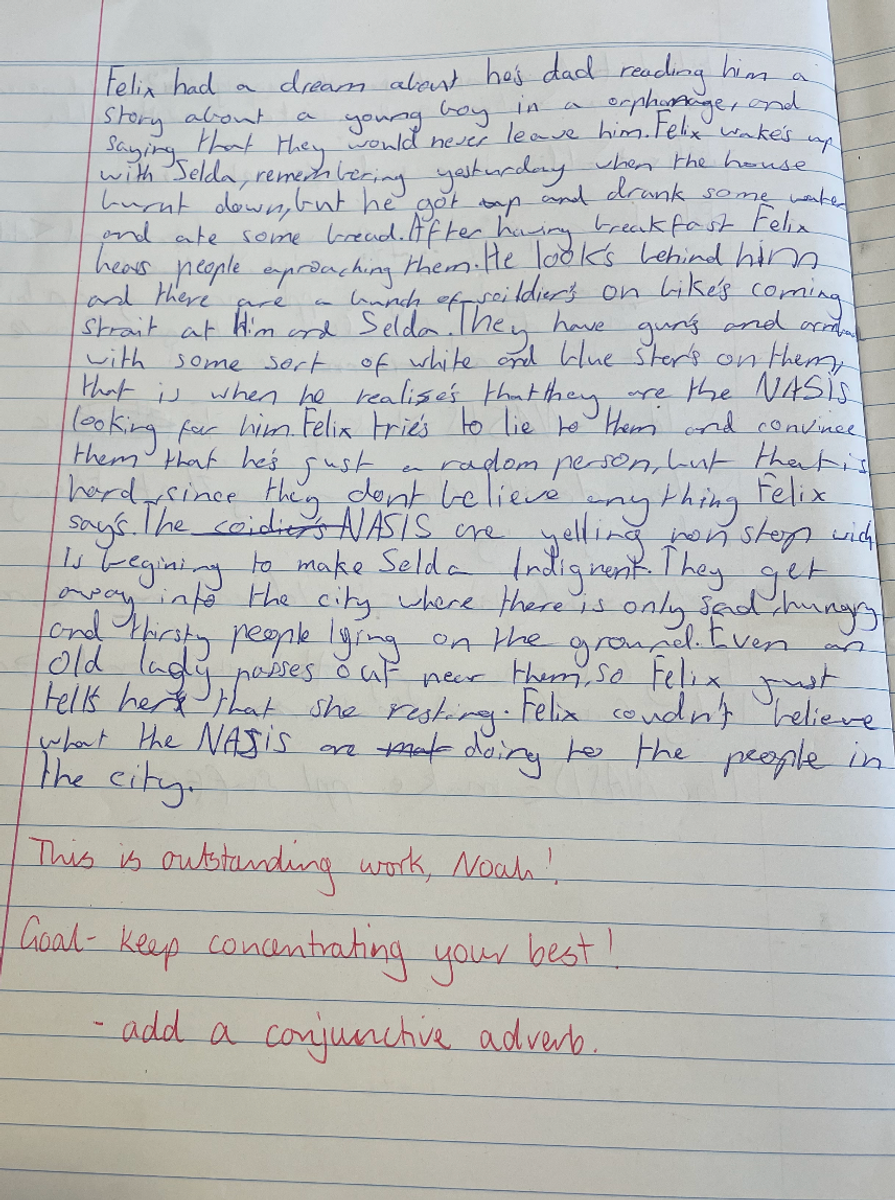 Felix had a dream about he's dad reading him a
story about a young boy in a orphanage, and
saying that they would never leave him. Felix wake's up
with Selda, remembering yesturday when the house
burnt down, but he got up and drank some water
and ate some bread. After having breakfast Felix
hears people aproaching them. He look's behind him
and there are a bunch of soildier's on bike's coming
strait at Him and Selda. They have gun's and
with some sort of white and blue ster's on them,
that is when he realise's that they are the NASIS
looking for him. Felix trie's to lie to them and convince
them that he's just a radom person, but that is
hard, since they dont believe anything Felix
say's. The soidier's NASIS are yelling non stop wich
is begining to make Selda Indignent. They get
away into the city where there is only Sad, hungry
and thirsty people lying on the ground. Even an
old lady passes out near them, so Felix just
tells her that she resting. Felix coudn't believe
what the NASIS are doing to the people in
the city.
This is outstanding work, Noah!
Goal - keep concentrating your best!
- add a conjunctive adverb.